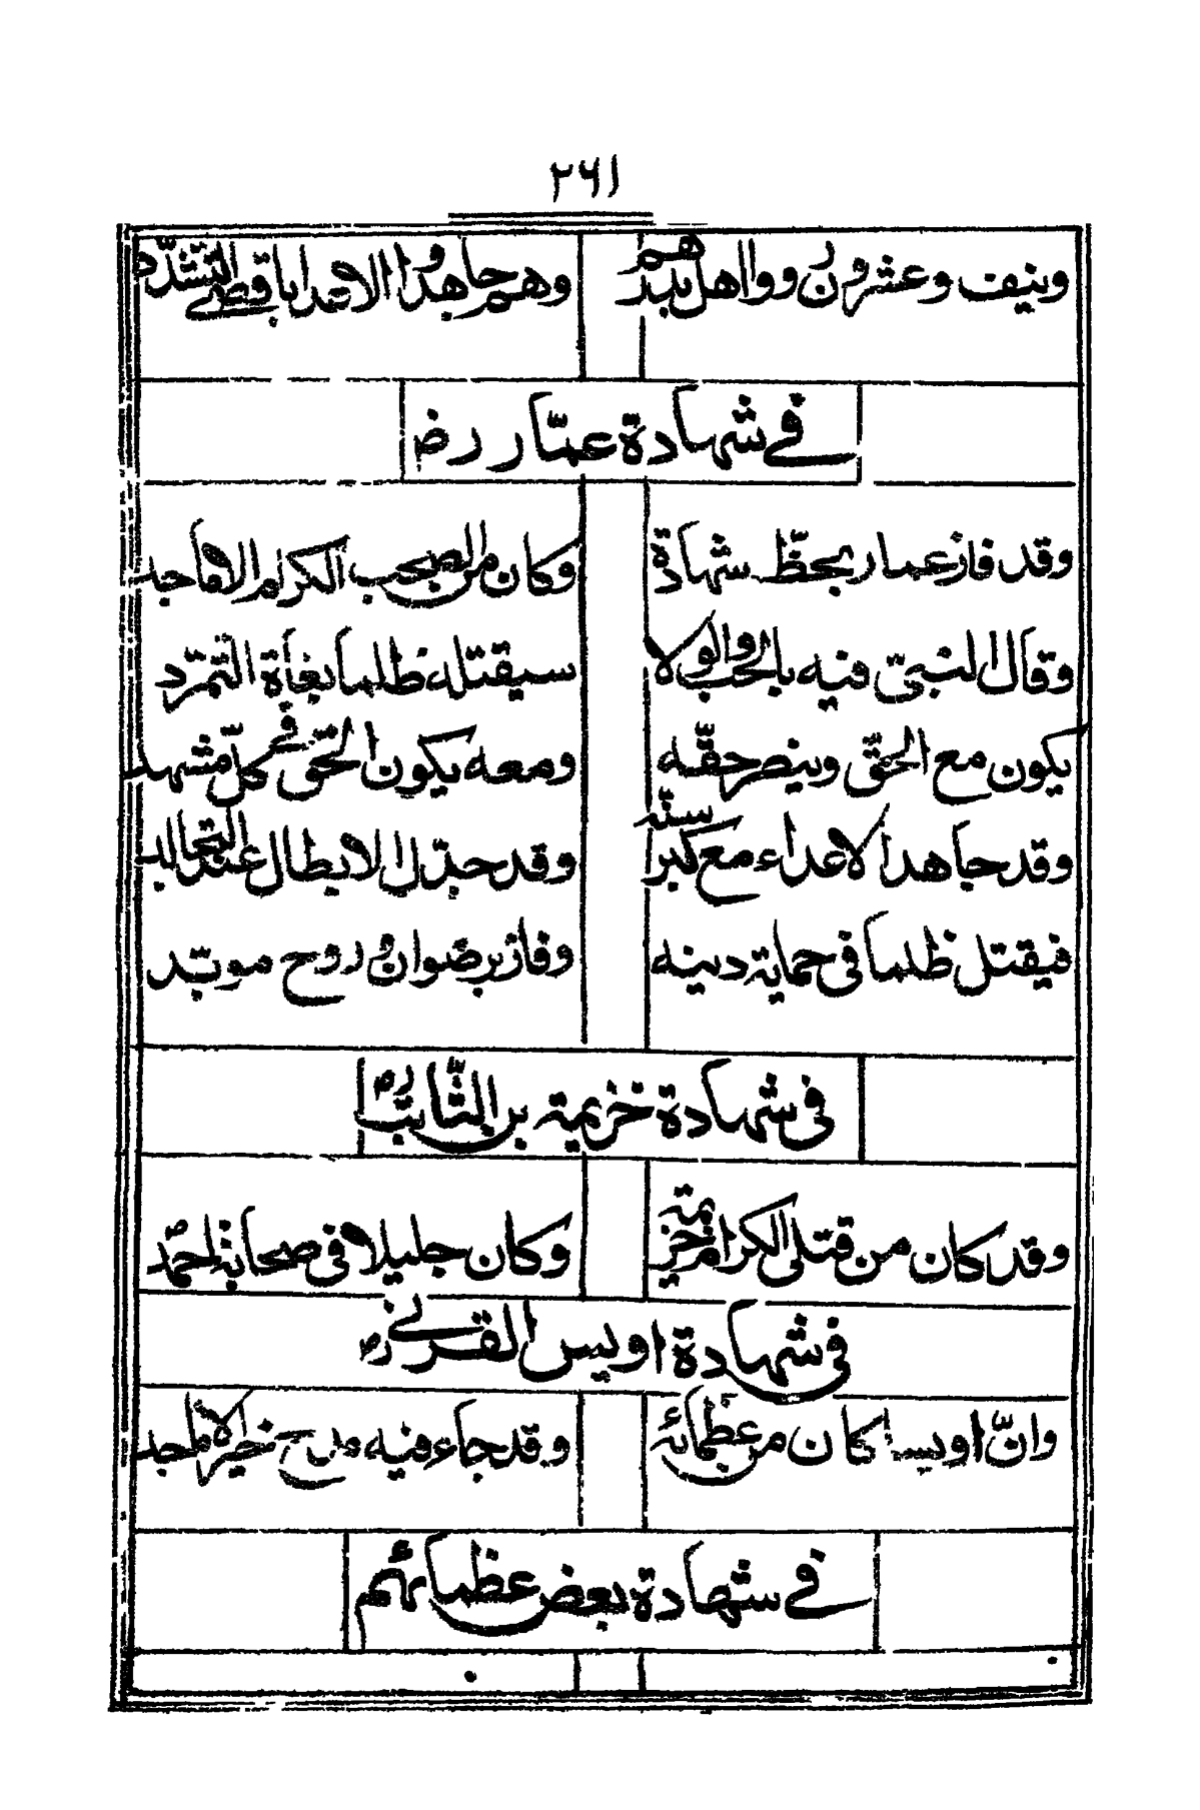 ٢٦١
ونيف وعشرون ووا اهل بدرهم وهم جاهدوا الاعدا باقصى التشدد
في شهادة عمّار رض
وقد فاز عمار بحظّ شهادة وكان من الصحب الكرام الاماجد
وقال النبيّ فيه بالحب والولا سيقتله ظلما بغاة التمرّد
يكون مع الحقّ وينصر حقّه ومعه يكون الحّق في كلّ مشهد
وقد جاهد الاعداء مع كبر سنّه وقد جدّل الابطال عند التجالد
فيقتل ظلما في حماية دينه وفاز برضوان وروح مويّد
في شهادة خزيمة بن الثّابتؓ
وقد كان من قتلى الكرام خزيمة وكان جليلا في صحابة احمد
في شهادة اويس القرني رض
وانّ اويسا كان من عظمائه وقد جاء فيه مدح خير الاماجد
في شهادة بعض عظمائهم